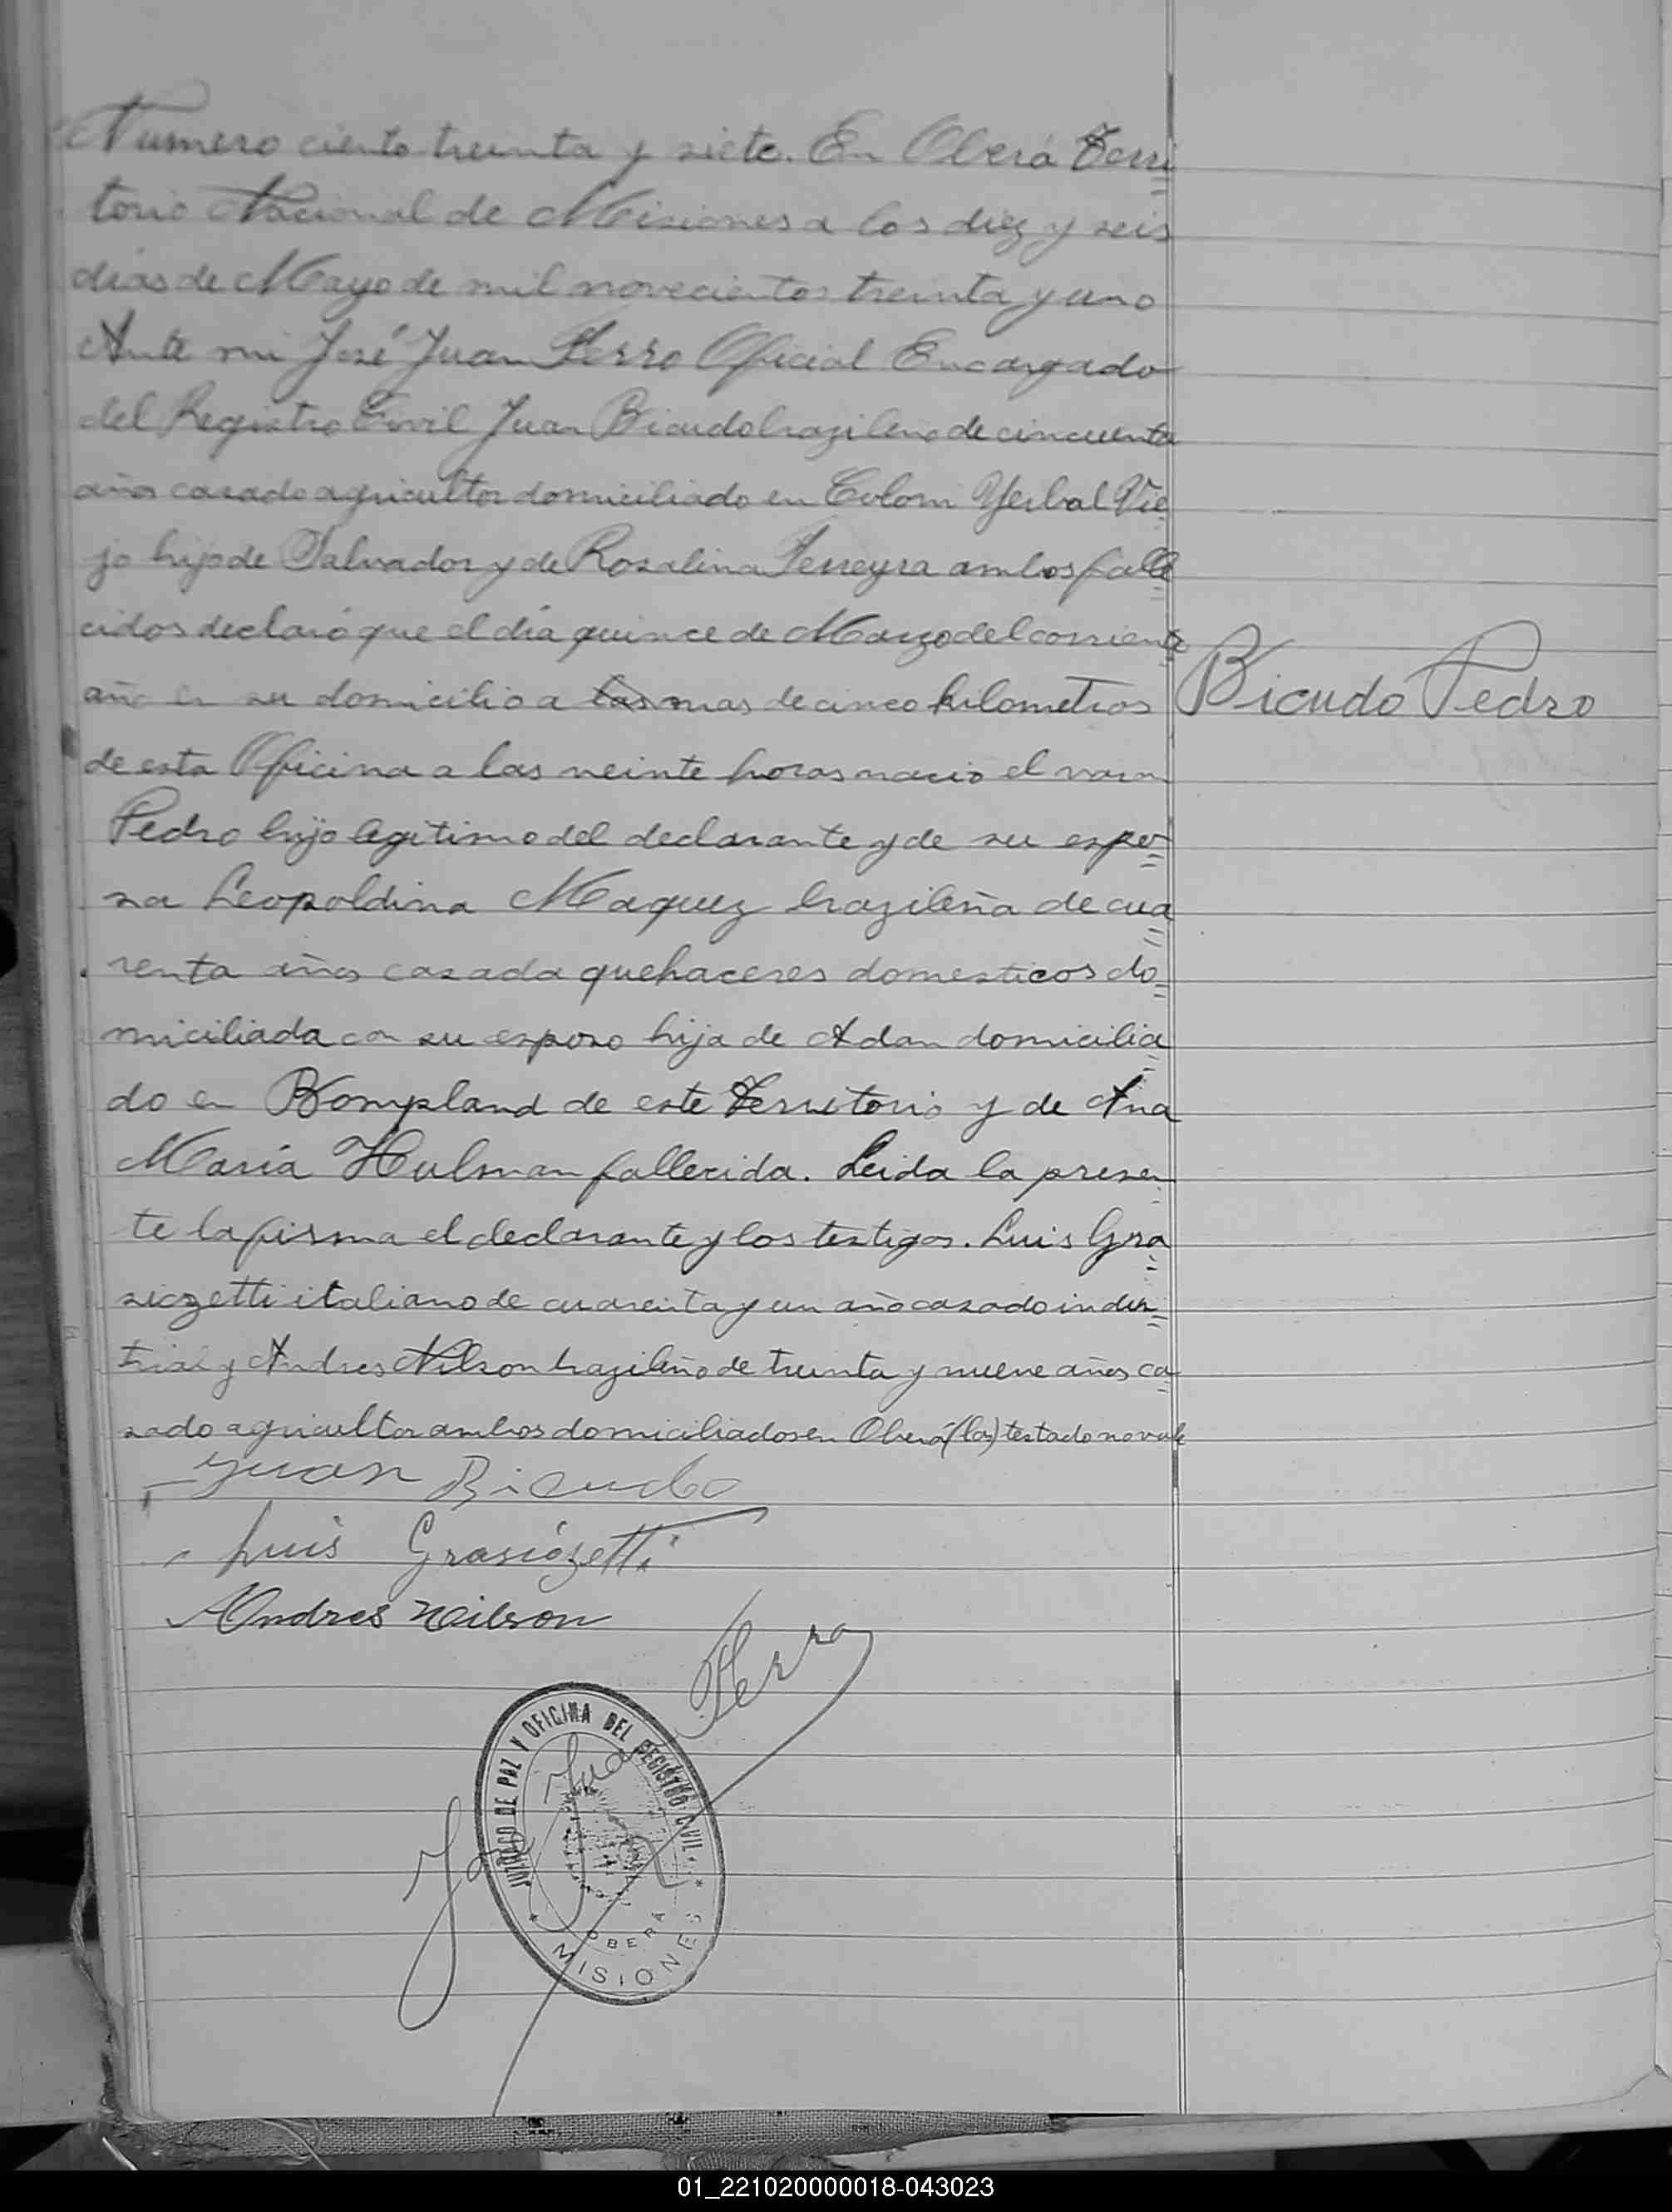 Numero ciento treinta y siete. En Oberá Terri=
torio Nacional de Misiones a los diez y seis
dias de Mayo de mil novecientos treinta y uno
Ante mi José Juan Ferro Oficial Encargado
del Registro Civil Juan Bicudo brazileno de cincuenta
años casado agricultor domiciliado en Coloni Yerbal Vie=
jo hijo de Salvador y de Rosalina Ferreyra ambos falle=
cidos declaró que el día quince de Marzo del corriente
año en su domicilio a las mas de cinco kilometros
Bicudo Pedro
de esta Oficina a las veinte horas nacio el varon
Pedro hijo legitimo del declarante y de su espo=
sa Leopoldina Maquez brazileña de cua=
renta años casada quehaceres domesticos do=
miciliada con su esposo hija de Adan domicilia=
do en Bompland de este Territorio y de Ana
María Hulman fallecida. Leida la presen=
te la firma el declarante y los testigos. Luis Gra=
siozetti italiano de cuarenta y un año casado indus=
trial y Andres Nilson brazileño de treinta y nueve años ca=
sado agricultor ambos domiciliados en Oberá (las) testado no vale
Juan Bicudo
Luis Grasiózetti
Andres Neilson
José Juan Ferro
JUZGADO DE PAZ Y OFICINA DEL REGISTRO CIVIL
OBERÁ
* MISIONES *
01_221020000018-043023